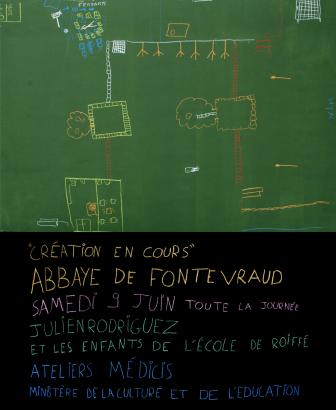 "CRÉATION EN COURS"
ABBAYE DE FONTEVRAUD
SAMEDI 9 JUIN TOUTE LA JOURNÉE
JULIEN RODRIGUEZ
ET LES ENFANTS DE L'ÉCOLE DE ROIFFÉ
ATELIERS MÉDICIS
MINISTÈRE DE LA CULTURE ET DE L'EDUCATION